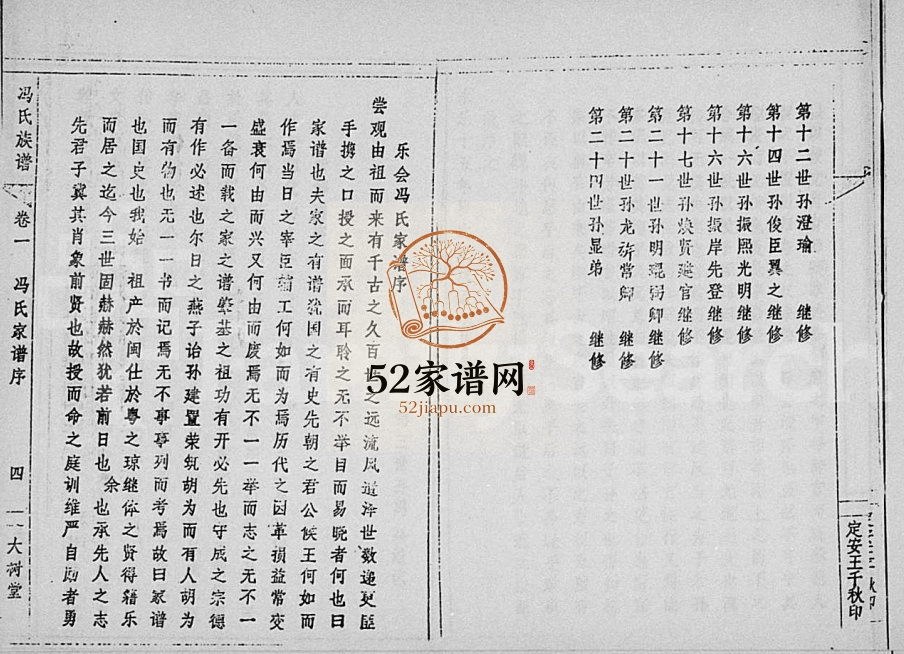 第十二世孙澄瑜 继修
第十四世孙俊臣翼之 继修
第十六世孙振熙光明继修
第十六世孙振岸先登继修
第十七世孙焕贤建官继修
第二十一世孙明琨弼卿继修
第二十世孙龙旂常卿 继修
第二十四世孙显弟 继修
定安王千秋印
乐会冯氏家谱序
尝观由祖而来有千古之久百世之远流风遗泽世数递更匪
手携之口授之面承而耳聆之无不举目而易晓者何也曰
家谱也夫家之有谱犹国之有史先朝之君公侯王何如而
作焉当日之宰臣辅工何如而为焉历代之因革损益常变
盛衰何由而兴又何由而废焉无不一一举而志之无不一
一备而载之家之谱肇基之祖功有开必先也守成之宗德
有作必述也尔日之燕子诒孙建置荣筑胡为而有人胡为
而有物也无一一书而记焉无不事事列而考焉故曰家谱
也国史也我始 祖产於闽仕於粤之琼继体之贤得籍乐
而居之迄今三世固赫赫然犹若前日也 余也承先人之志
先君子冀其肖象前贤也故授而命之庭训维严自励者勇
冯氏族谱 卷一 冯氏家谱序 四 大树堂
52家谱网
52jiapu.com